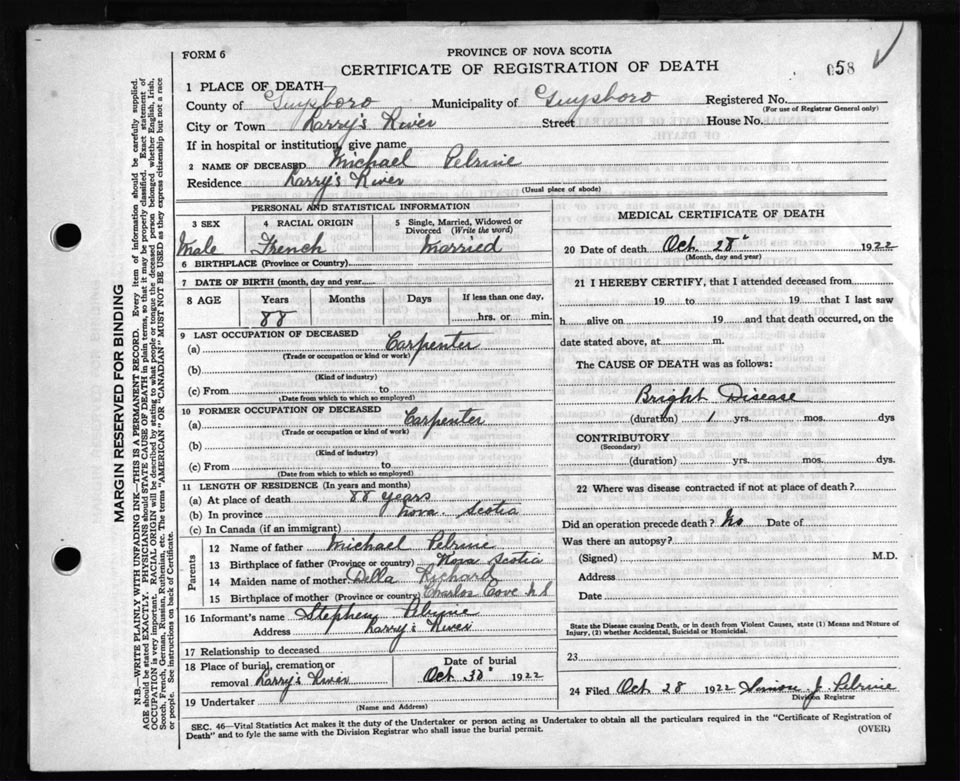 FORM 6
PROVINCE OF NOVA SCOTIA
CERTIFICATE OF REGISTRATION OF DEATH
058
1 PLACE OF DEATH
County of Guysboro Municipality of Guysboro Registered No.
(For use of Registrar General only)
City or Town Larry's River Street House No.
If in hospital or institution, give name
2 NAME OF DECEASED Michael Pelrine
Residence Larry's River
(Usual place of abode)
PERSONAL AND STATISTICAL INFORMATION
3 SEX 4 RACIAL ORIGIN 5 Single, Married, Widowed or Divorced (Write the word)
Male French Married
6 BIRTHPLACE (Province or Country)
7 DATE OF BIRTH (month, day and year)
8 AGE Years Months Days If less than one day,
88 hrs. or min.
9 LAST OCCUPATION OF DECEASED
(a) Carpenter
(Trade or occupation or kind or work)
(b)
(Kind of industry)
(c) From to
(Date from which to which so employed)
10 FORMER OCCUPATION OF DECEASED
(a) Carpenter
(Trade or occupation or kind of work)
(b)
(Kind of industry)
(c) From to
(Date from which to which so employed)
11 LENGTH OF RESIDENCE (In years and months)
(a) At place of death 88 years
(b) In province Nova Scotia
(c) In Canada (if an immigrant)
Parents
12 Name of father Michael Pelrine
13 Birthplace of father (Province or country) Nova Scotia
14 Maiden name of mother Della Richard
15 Birthplace of mother (Province or country) Charlos Cove N S
16 Informant's name Stephen Pelrine
Address Larry's River
17 Relationship to deceased
18 Place of burial, cremation or removal Larry's River
Date of burial
Oct 30 1922
19 Undertaker
(Name and Address)
MEDICAL CERTIFICATE OF DEATH
20 Date of death Oct. 28 1922
(Month, day and year)
21 I HEREBY CERTIFY, that I attended deceased from
19 to 19 that I last saw
h alive on 19 and that death occurred, on the
date stated above, at m.
The CAUSE OF DEATH was as follows:
Bright Disease
(duration) 1 yrs. mos. dys
CONTRIBUTORY
(Secondary)
(duration) yrs. mos. dys.
22 Where was disease contracted if not at place of death?
Did an operation precede death? No Date of
Was there an autopsy?
(Signed) M.D.
Address
Date
State the Disease causing Death, or in death from Violent Causes, state (1) Means and Nature of
Injury, (2) whether Accidental, Suicidal or Homicidal.
23
24 Filed Oct 28 1922 Simon J. Pelrine
Division Registrar
SEC. 46—Vital Statistics Act makes it the duty of the Undertaker or person acting as Undertaker to obtain all the particulars required in the "Certificate of Registration of
Death" and to fyle the same with the Division Registrar who shall issue the burial permit.
(OVER)
MARGIN RESERVED FOR BINDING
N.B.—WRITE PLAINLY WITH UNFADING INK—THIS IS A PERMANENT RECORD. Every item of information should be carefully supplied.
AGE should be stated EXACTLY. PHYSICIANS should STATE CAUSE OF DEATH in plain terms, so that it may be properly classified. Exact statement of
OCCUPATION is very important. RACIAL ORIGIN will be described by stating to what people or tongue the deceased person belonged whether English, Irish,
Scotch, French, German, Russian, Ruthenian, etc. The terms "AMERICAN" OR "CANADIAN" MUST NOT BE USED as they express citizenship but not a race
or people. See instructions on back of Certificate.